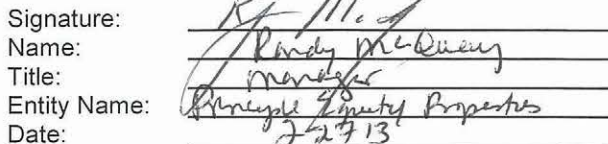 Signature:
Name: Randy McQueary
Title: Manager
Entity Name: Principle Equity Properties
Date: 2-27-13